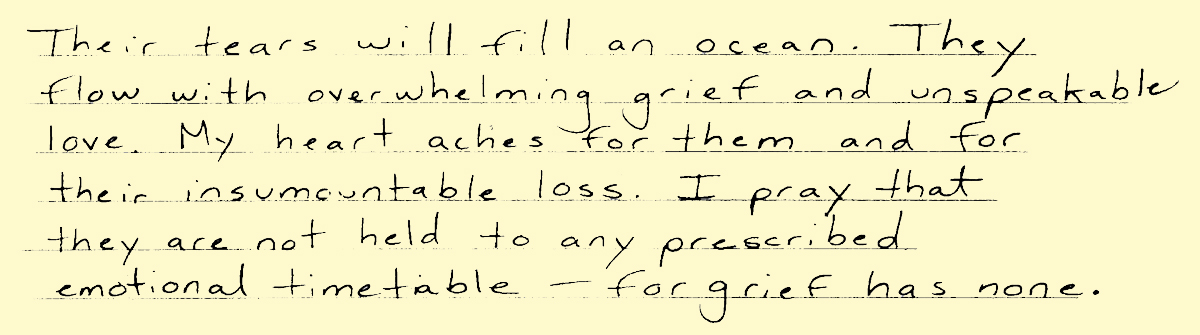 Their tears will fill an ocean. They
flow with overwhelming grief and unspeakable
love. My heart aches for them and for
their insumountable loss. I pray that
they are not held to any prescribed
emotional timetable — for grief has none.